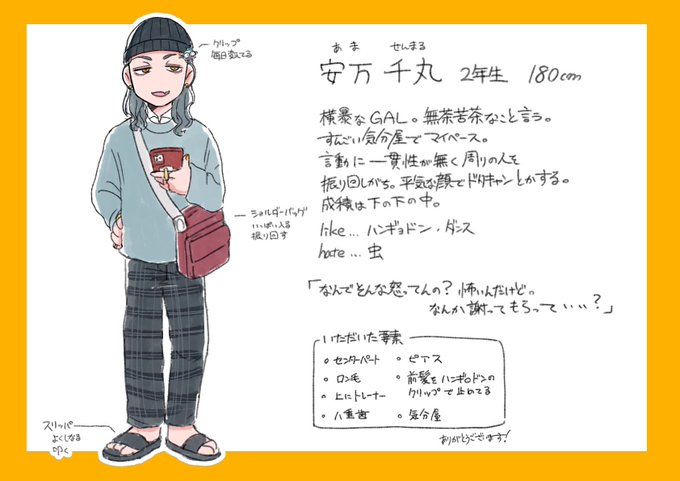 クリップ
毎日変えてる
あま せんまる
安万 千丸 2年生 180cm
横暴なGAL。無茶苦茶なこと言う。
すんごい気分屋でマイペース。
言動に一貫性が無く周りの人を
振り回しがち。平気な顔でドタキャンとかする。
成績は下の下の中。
like... ハンギョドン・ダンス
hate... 虫
ショルダーバッグ
いっぱい入る
振り回す
「なんでそんな怒ってんの？怖いんだけど。
なんか謝ってもらっていい？」
いただいた要素
◦センターパート
◦ロン毛
◦上にトレーナー
◦八重歯
◦ピアス
◦前髪をハンギョドンの
クリップで止めてる
◦気分屋
ありがとうございます！
スリッパ
よくしなる
叩く